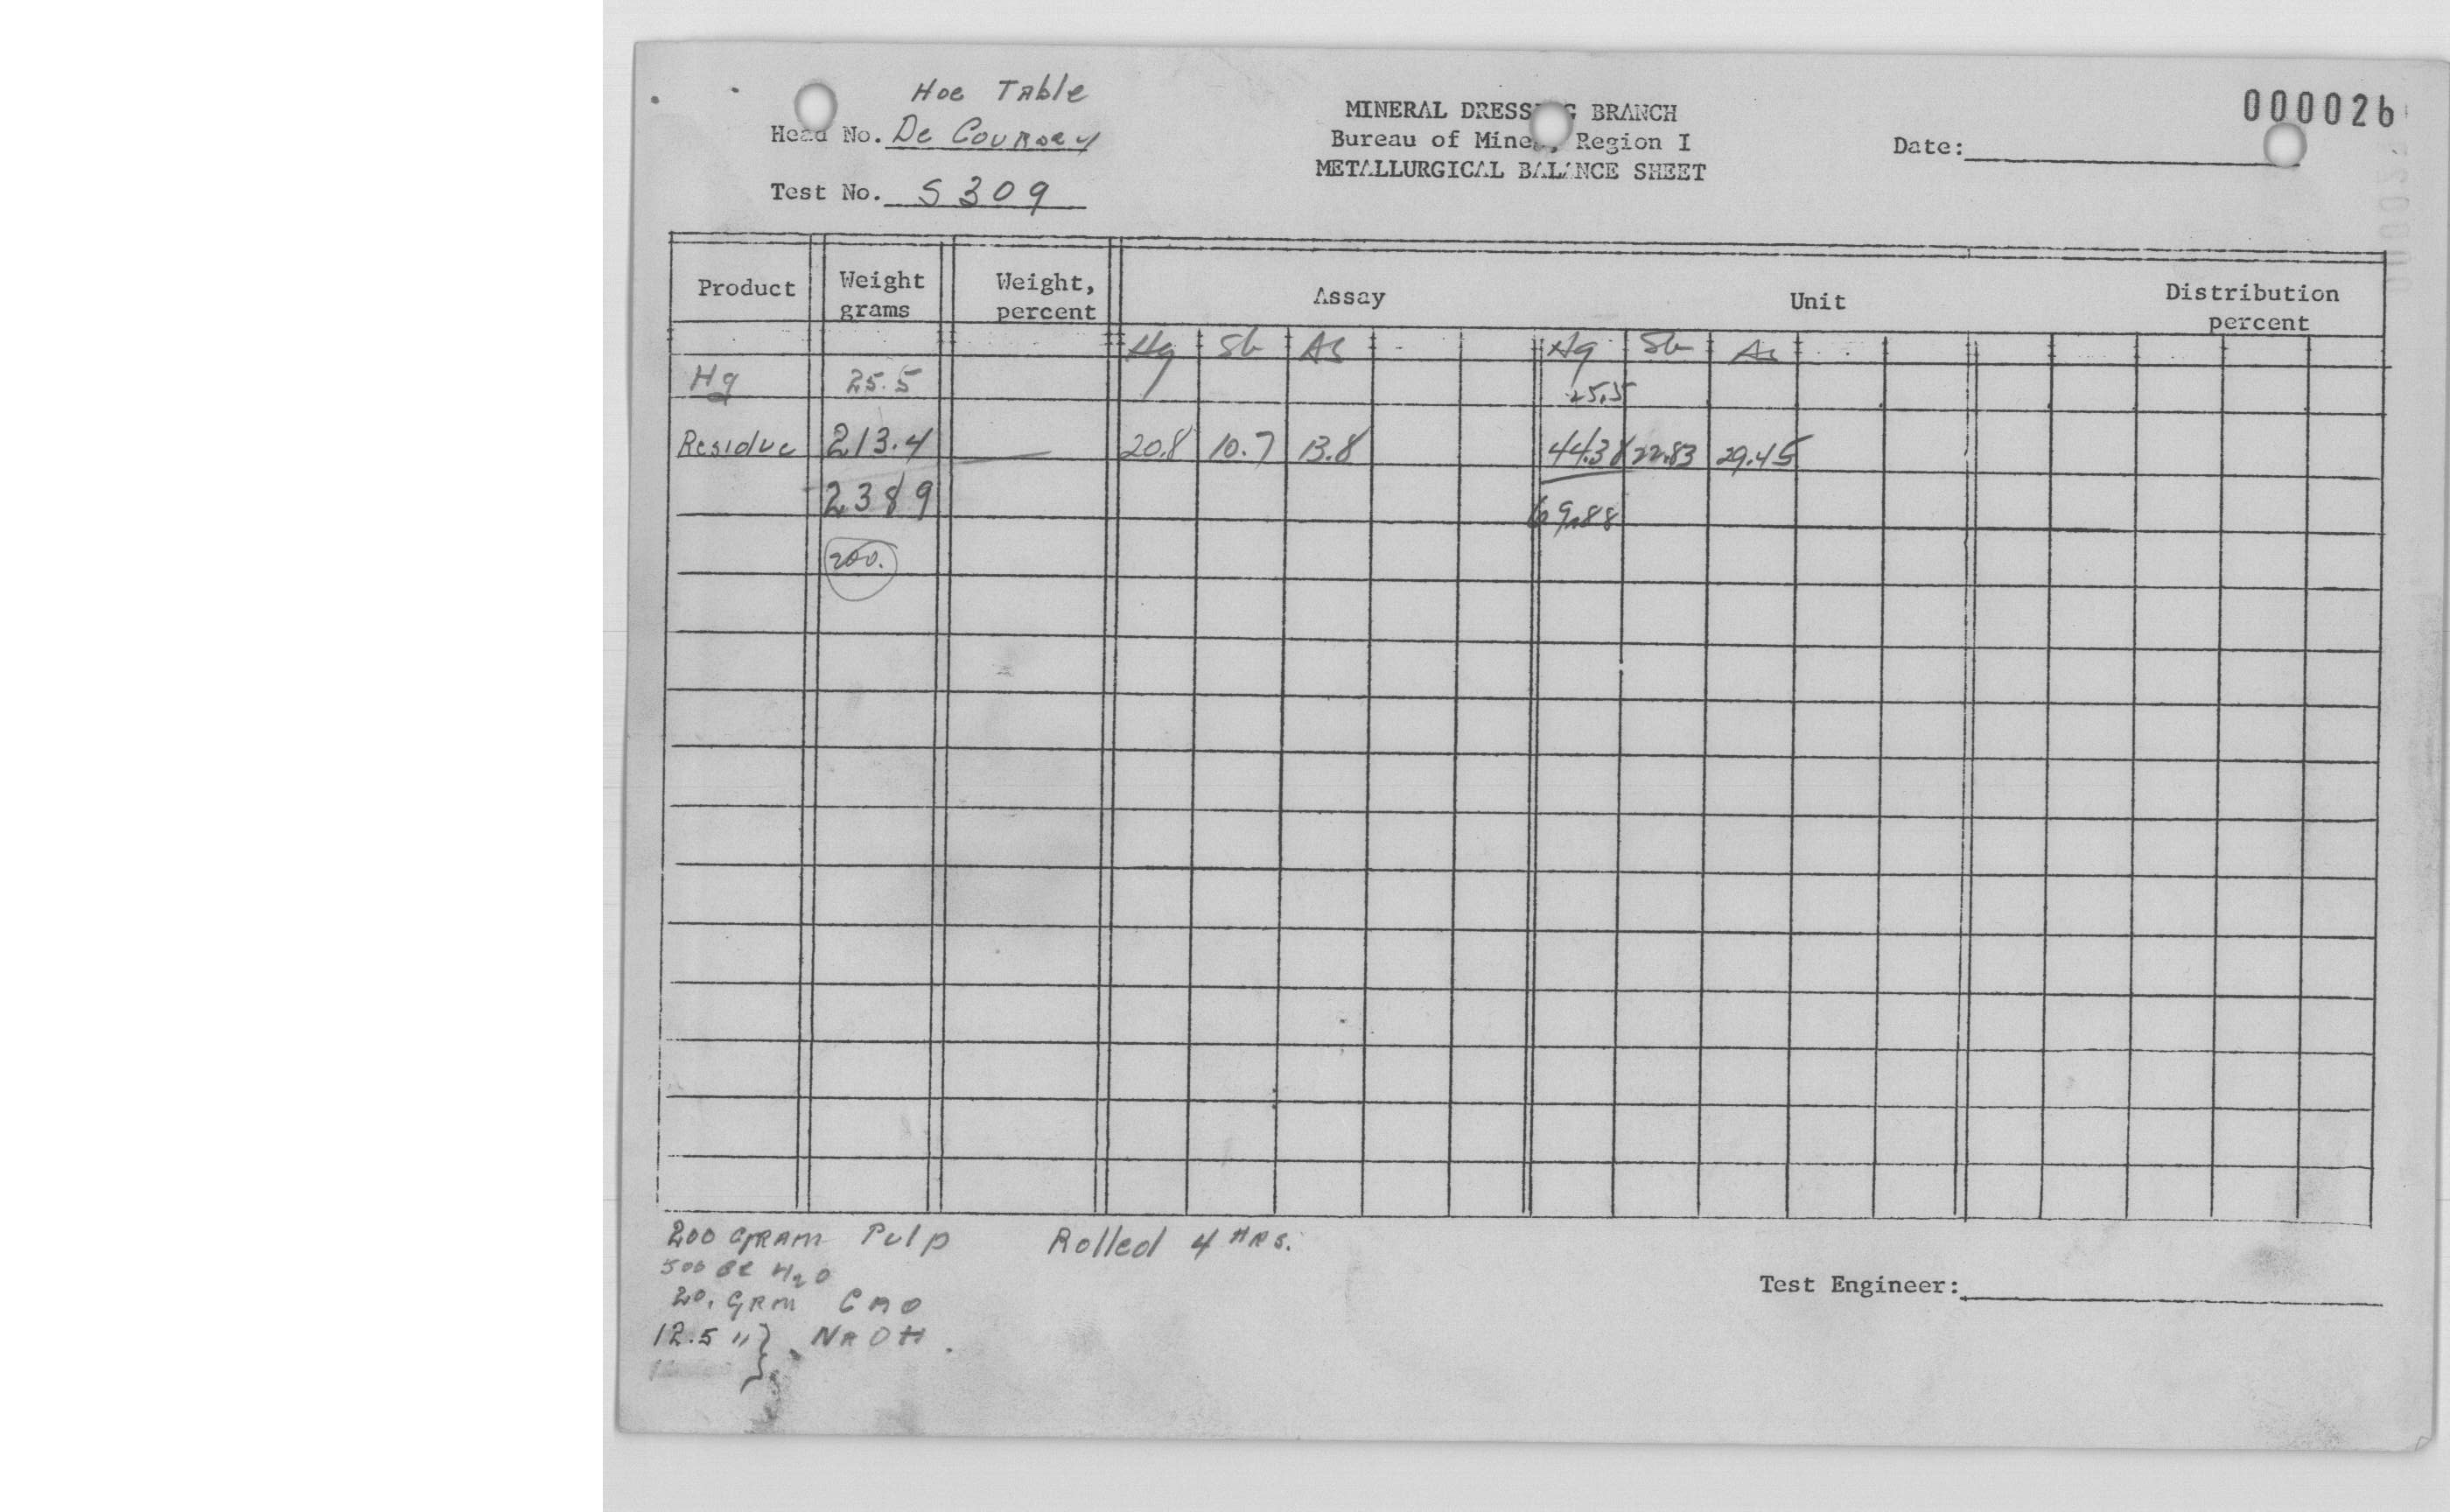 Hoe Table
Head No. De Coursey
Test No. S309
MINERAL DRESSING BRANCH
Bureau of Mines, Region I
METALLURGICAL BALANCE SHEET
000026
Date:
Product Weight grams Weight, percent Assay Unit Distribution percent
Hg Sb As Hg Sb As
Hg 25.5 25.5
Residue 213.4 20.8 10.7 13.8 44.38 22.83 29.45
238 9 69.88
200.
200 GRAM Pulp Rolled 4 HRS.
500 cc H2O
20. GRM CAO
12.5 " } NAOH.
Test Engineer: